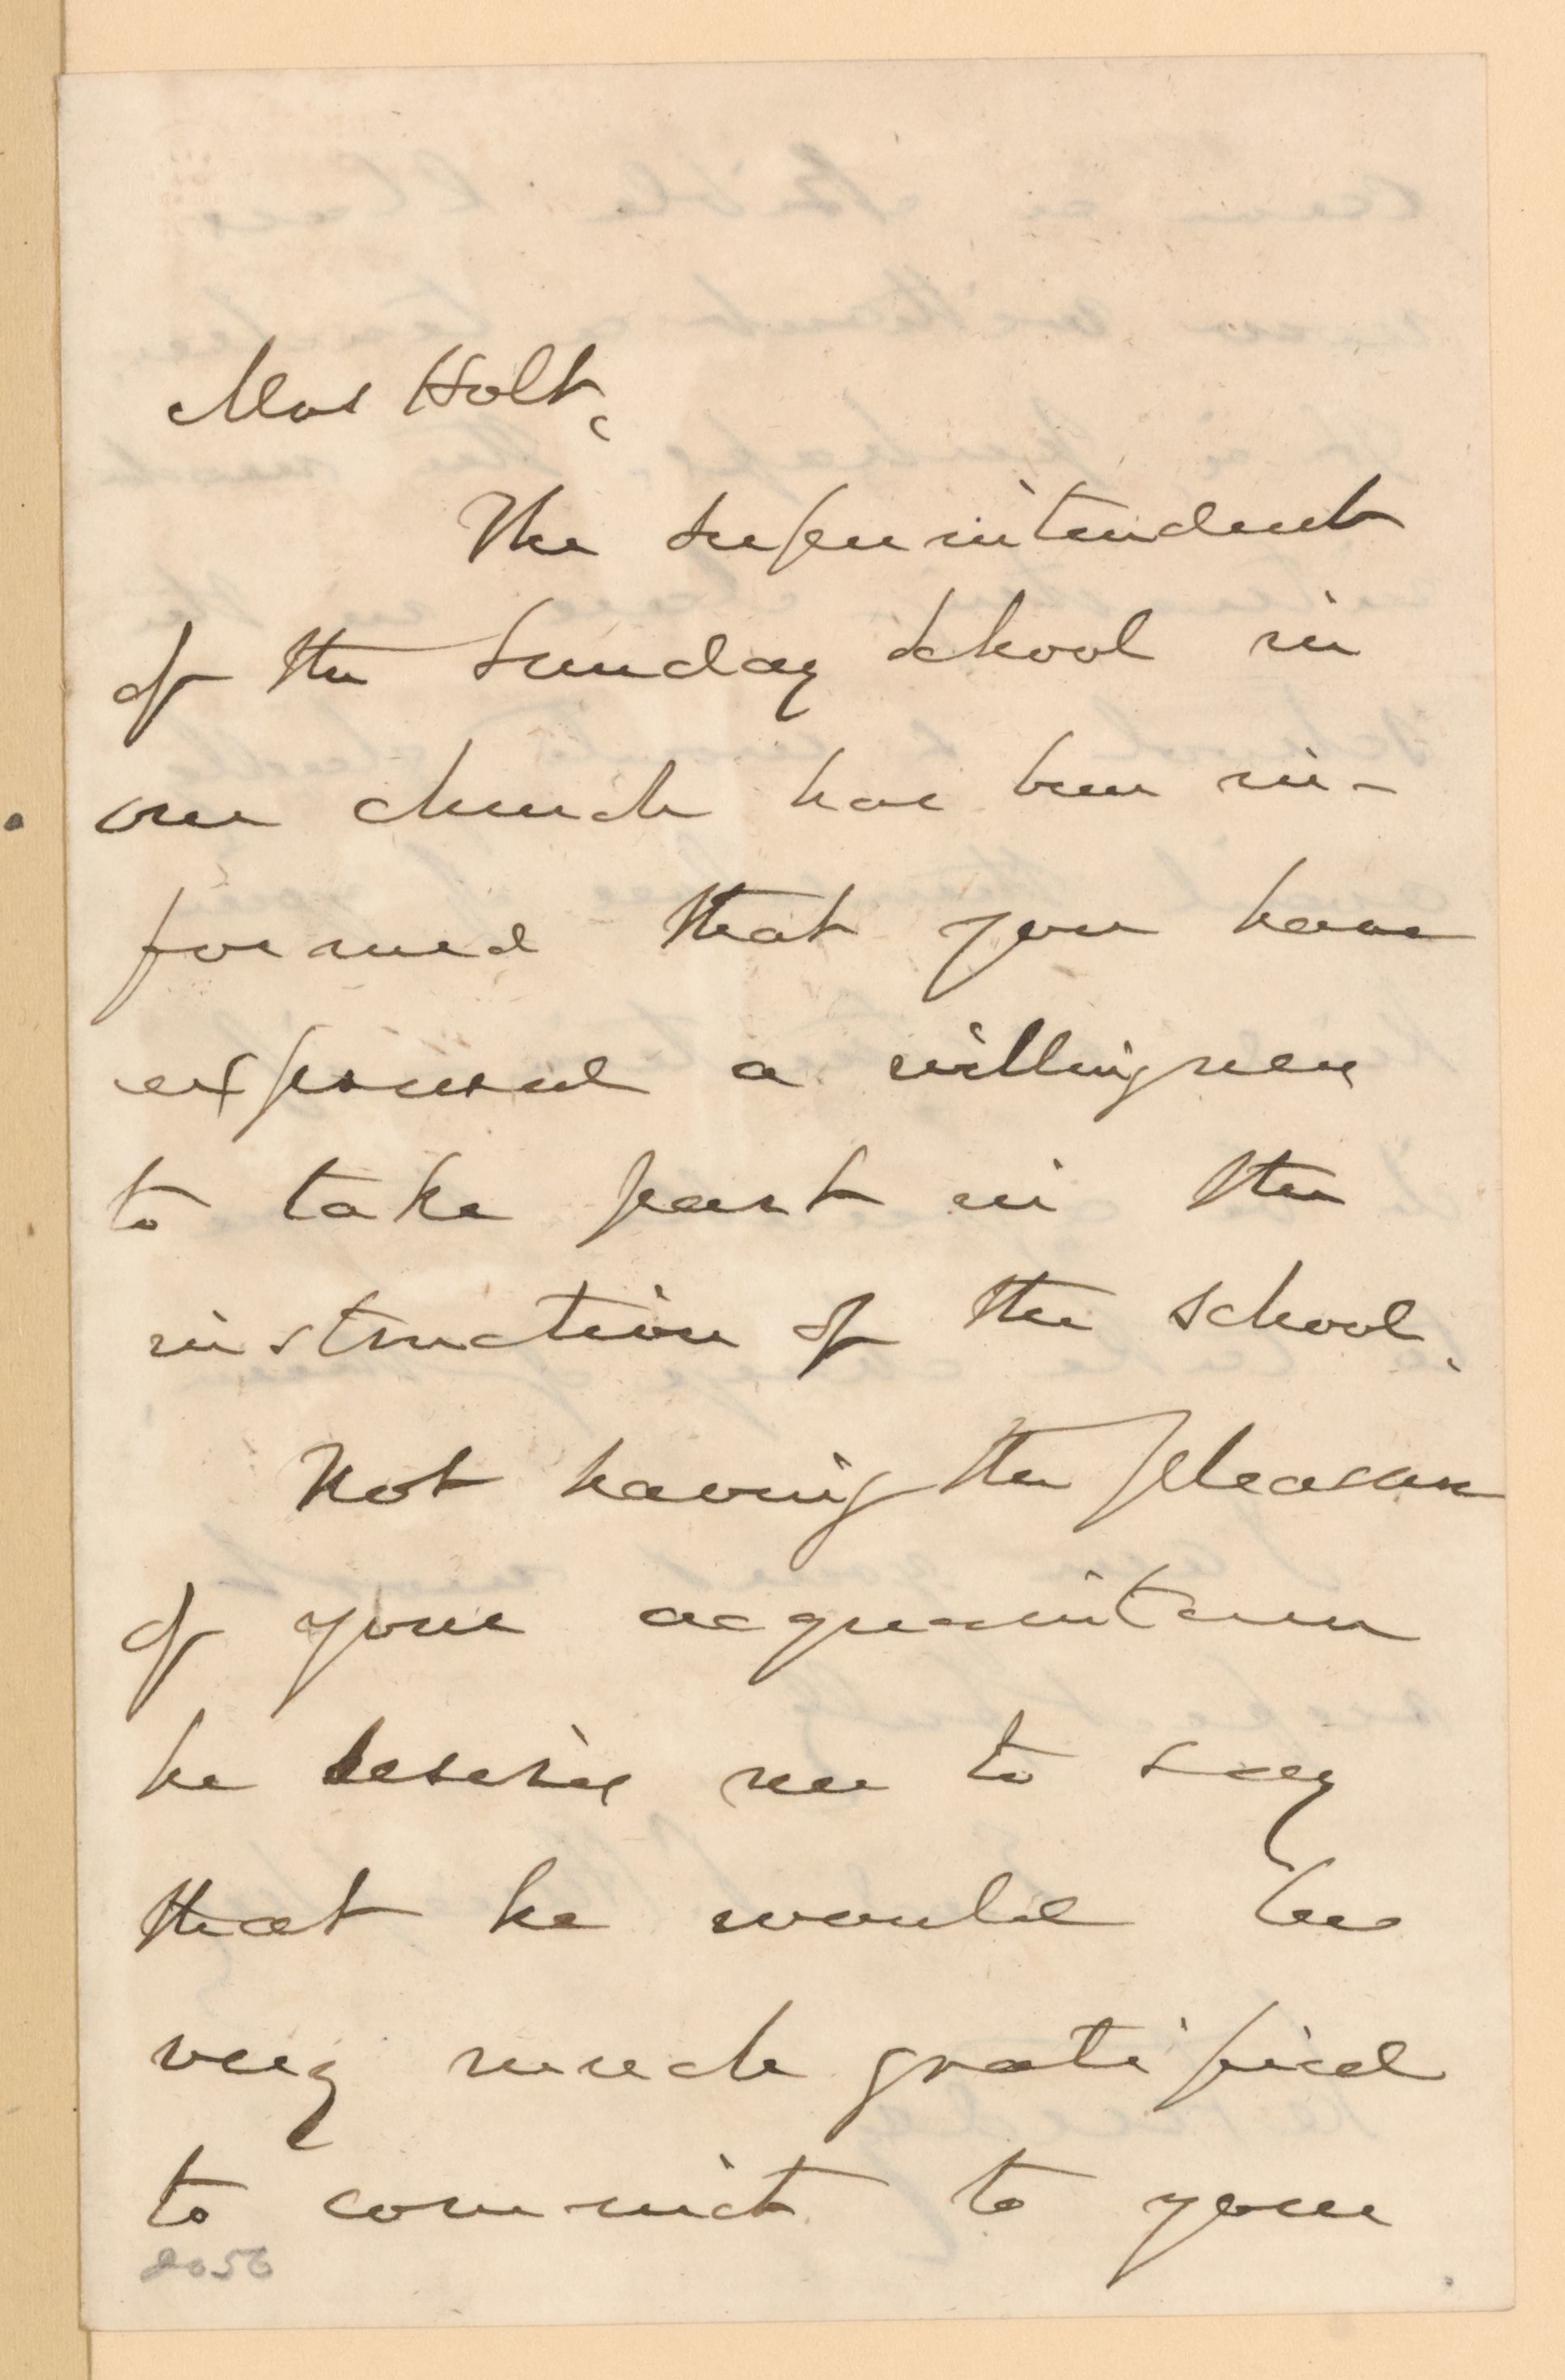 Mrs Holt,
The superintendent
of the Sunday School in
our church has been in-
formed that you have
expressed a willingness
to take part in the
instruction of the school.
Not having the pleasure
of your acquaintance
he desires me to say
that he would be
very much gratified
to commit to your
2056